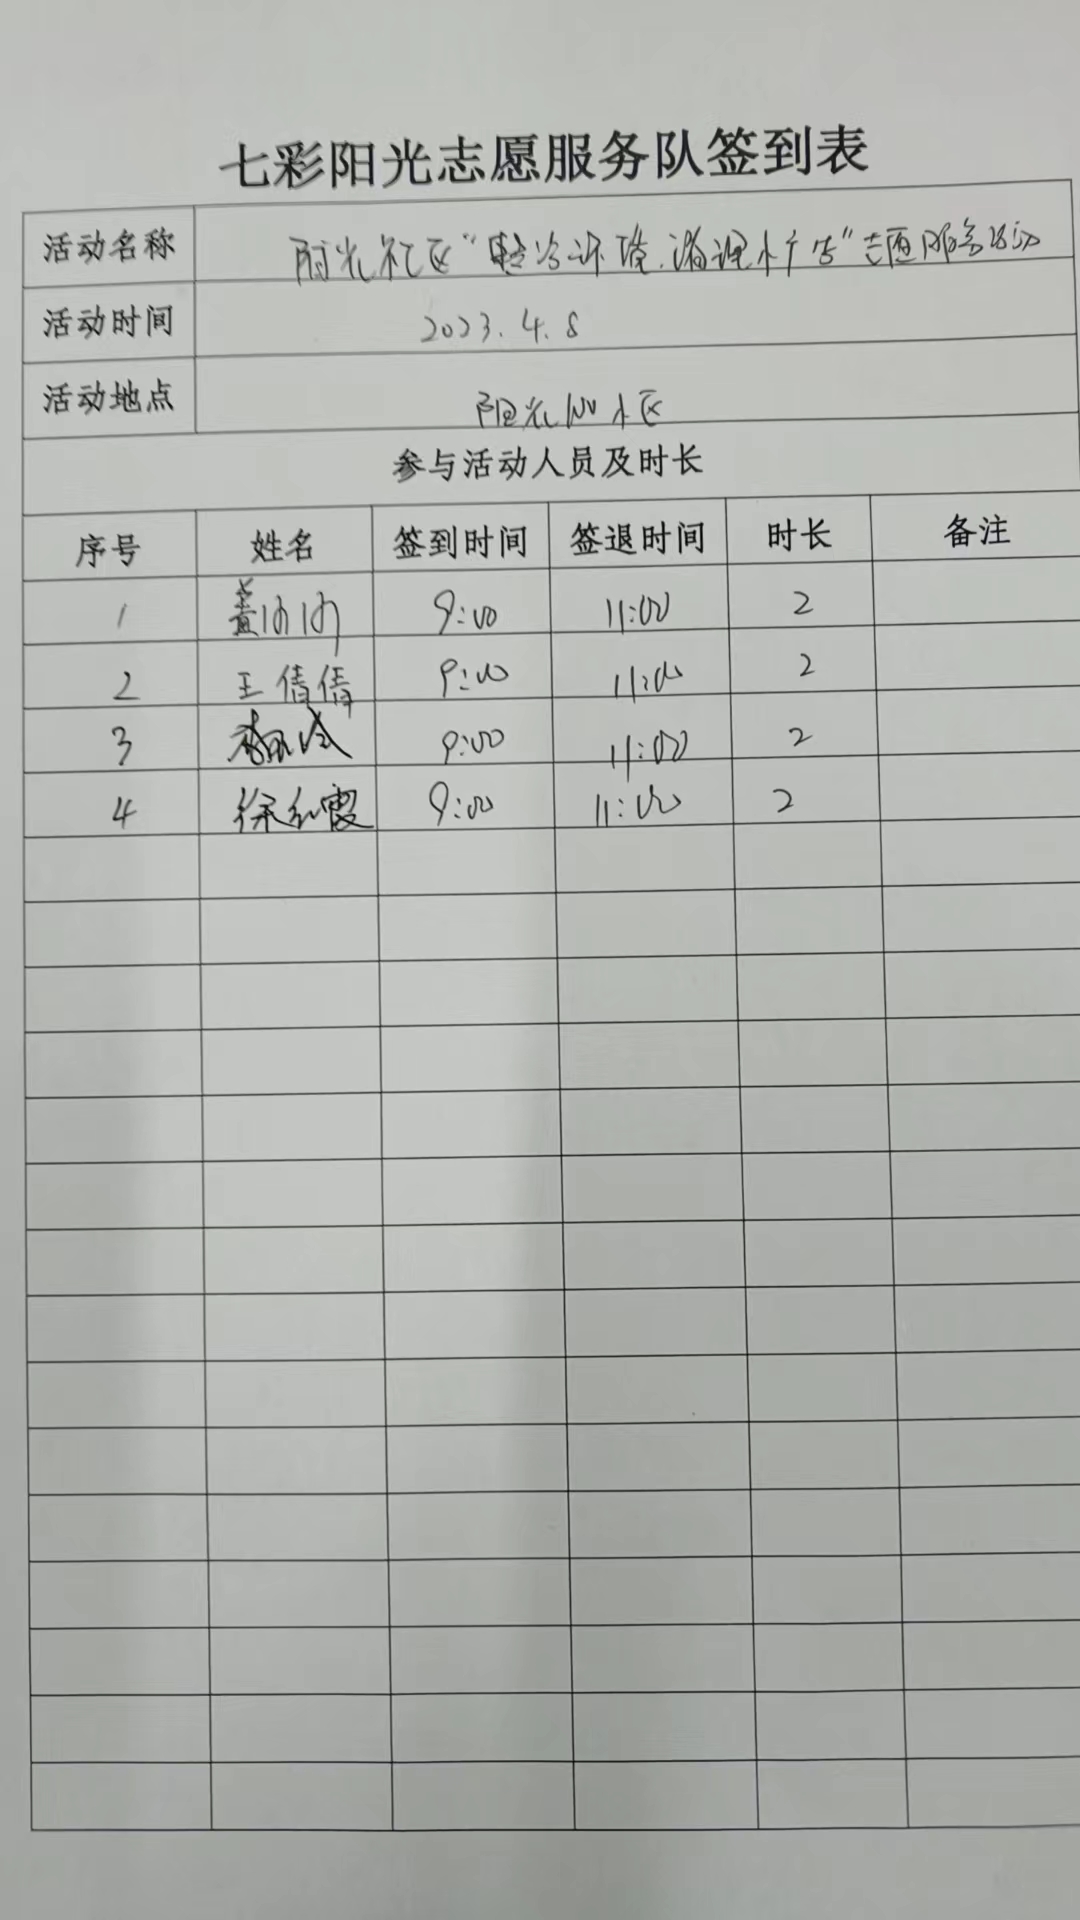 七彩阳光志愿服务队签到表
活动名称 阳光社区“整治环境.清理小广告”志愿服务活动
活动时间 2023.4.8
活动地点 阳光 小区
参与活动人员及时长
序号 姓名 签到时间 签退时间 时长 备注
1 9:00 11:00 2
2 王倩倩 9:00 11:00 2
3 9:00 11:00 2
4 徐红霞 9:00 11:00 2